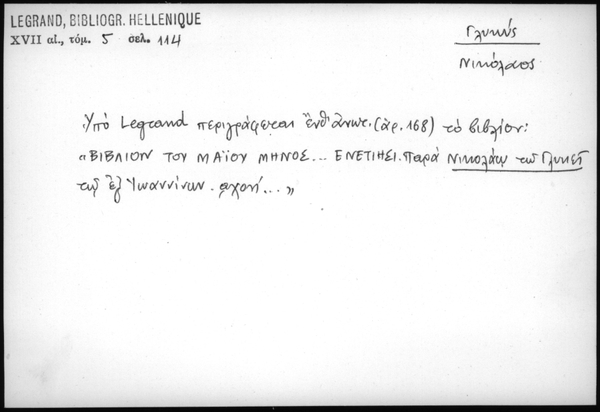 LEGRAND, BIBLIOGR. HELLENIQUE
XVII αἰ., τόμ. 5 σελ. 114
Γλυκύς
Νικόλαος
Ὑπό Legrand περιγράφεται ἔνθ' ἀνωτ. (ἀρ. 168) τὸ βιβλίον:
«ΒΙΒΛΙΟΝ ΤΟΥ ΜΑΪΟΥ ΜΗΝΟΣ... ΕΝΕΤΙΗΣΙ. παρὰ Νικολάῳ τῷ Γλυκεῖ
τῷ ἐξ Ἰωαννίνων. αχοή... »